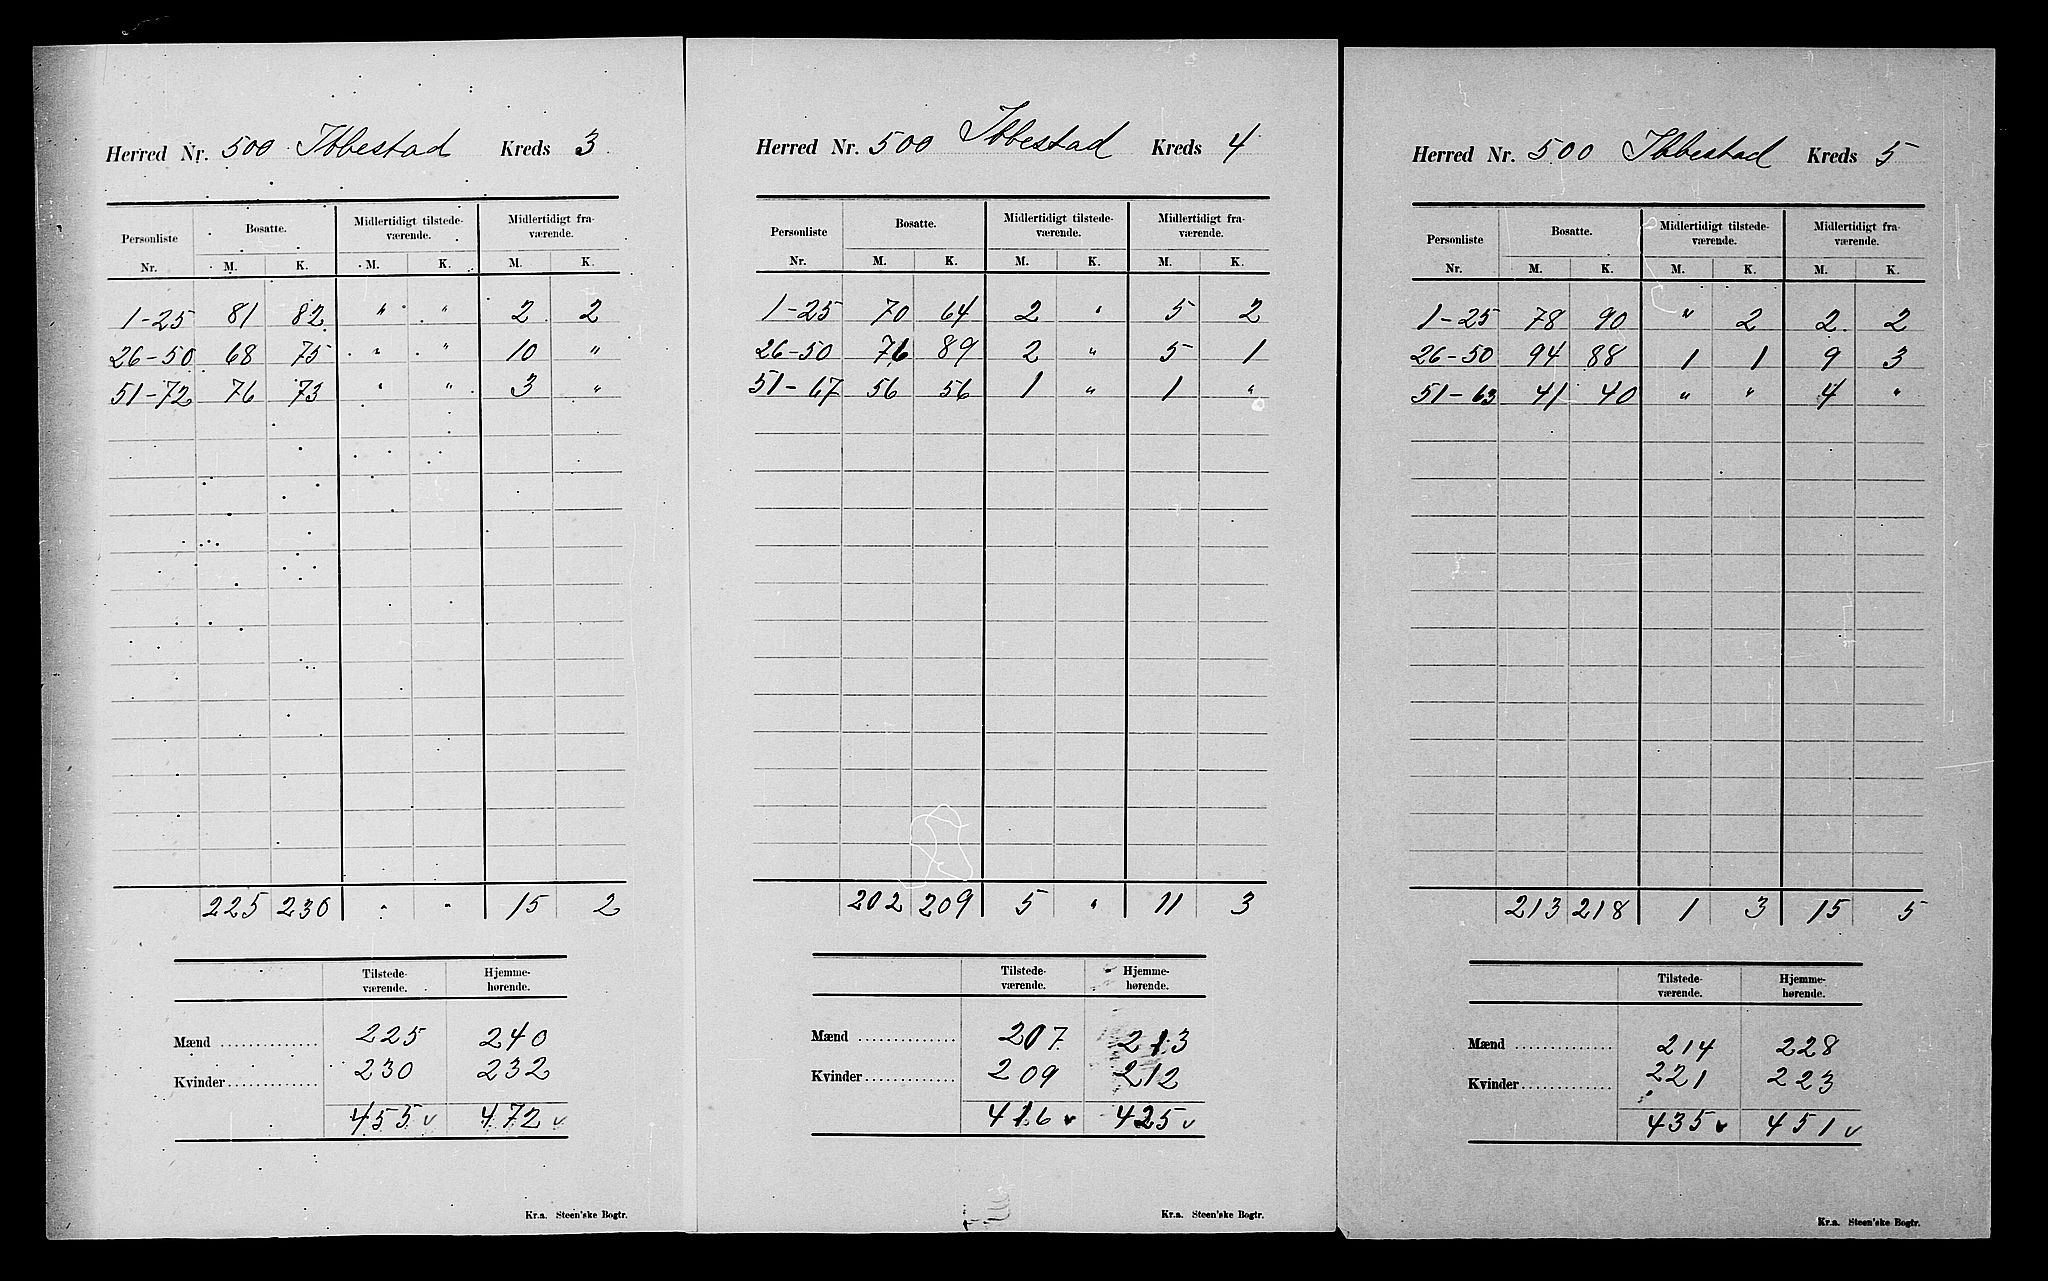 Herred Nr. 500 Ibbestad Kreds 3
Personliste Bosatte. Midlertidigt tilstede-værende. Midlertidigt fra-værende.
Nr. M. K. M. K. M. K.
1-25 81 82 " " 2 2
26-50 68 75 " " 10 "
51-72 76 73 " " 3 "
225 230 " " 15 2
Tilstede-værende. Hjemme-hørende.
Mænd 225 240
Kvinder 230 232
455 v 472 v
Kr.a. Steen'ske Bogtr.
Herred Nr. 500 Ibbestad Kreds 4
Personliste Bosatte. Midlertidigt tilstede-værende. Midlertidigt fra-værende.
Nr. M. K. M. K. M. K.
1-25 70 64 2 " 5 2
26-50 76 89 2 " 5 1
51-67 56 56 1 " 1 "
202 209 5 " 11 3
Tilstede-værende. Hjemme-hørende.
Mænd 207 213
Kvinder 209 212
416 v 425 v
Kr.a. Steen'ske Bogtr.
Herred Nr. 500 Ibbestad Kreds 5
Personliste Bosatte. Midlertidigt tilstede-værende. Midlertidigt fra-værende.
Nr. M. K. M. K. M. K.
1-25 78 90 " 2 2 2
26-50 94 88 1 1 9 3
51-63 41 40 " " 4 "
213 218 1 3 15 5
Tilstede-værende. Hjemme-hørende.
Mænd 214 228
Kvinder 221 223
435 v 451 v
Kr.a. Steen'ske Bogtr.